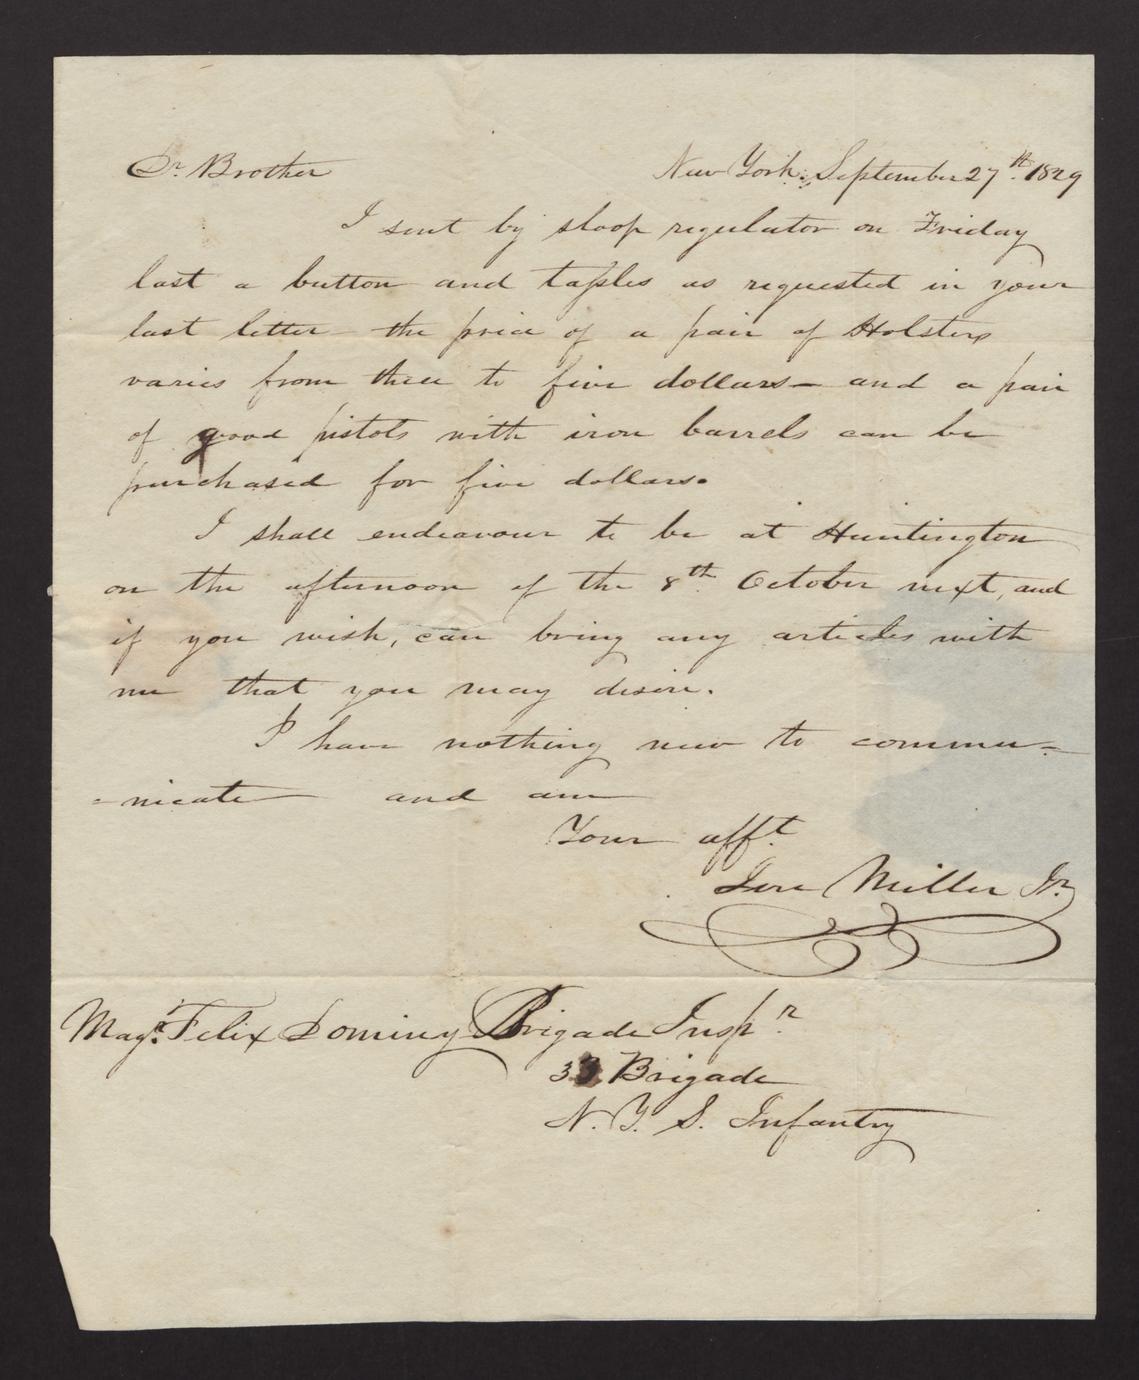 Dr. Brother New York, September 27th. 1829
I sent by sloop regulator on Friday
last a button and tassles as requested in your
last letter the price of a pair of Holsters
varies from three to five dollars— and a pair
of good pistols with iron barrels can be
purchased for five dollars.
I shall endeavour to be at Huntington
on the afternoon of the 8th. October next, and
if you wish, can bring any articles with
me that you may desire.
I have nothing new to commu=
=nicate and am
Your afft.
Jere Miller Jr.
Majr. Felix Dominy Brigade Inspr.
33 Brigade
N. Y. S. Infantry